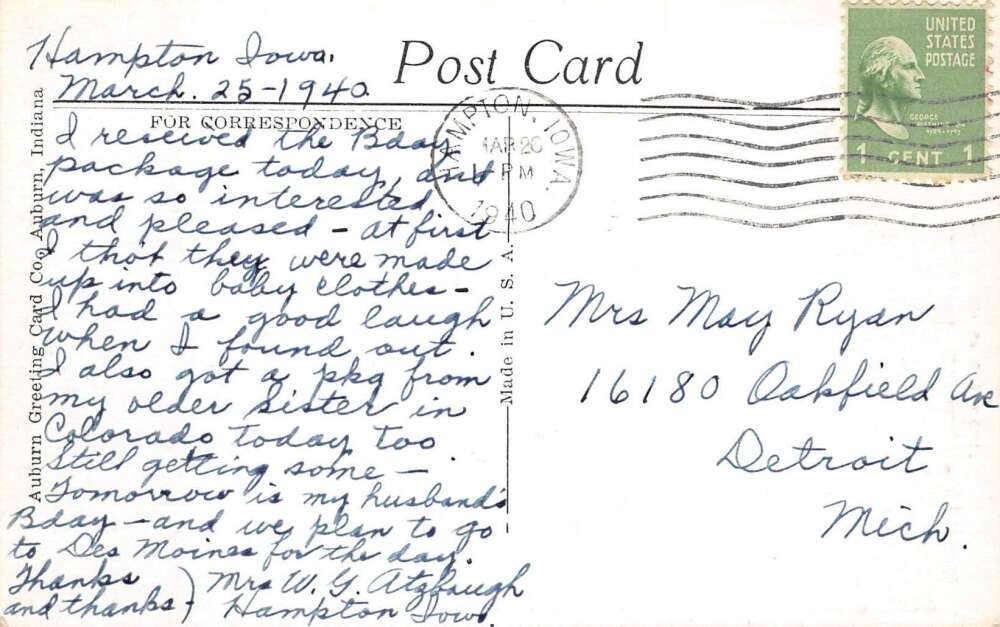 Hampton Iowa.
March. 25-1940
Post Card
FOR CORRESPONDENCE
I received the Bday
package today, and
was so interested
and pleased - at first
I thot they were made
up into baby clothes -
I had a good laugh
when I found out.
I also got a pkg from
my older sister in
Colorado today too
Still getting some -
Tomorrow is my husband's
Bday - and we plan to go
to Des Moines for the day.
Thanks
and thanks -
Mrs W. G. Atzbaugh
Hampton Iowa.
Auburn Greeting Card Co., Auburn, Indiana
Made in U. S. A.
HAMPTON, IOWA.
PM
1940
UNITED
STATES
POSTAGE
GEORGE
WASHINGTON
1 CENT 1
Mrs May Ryan
16180 Oakfield Ave
Detroit
Mich.